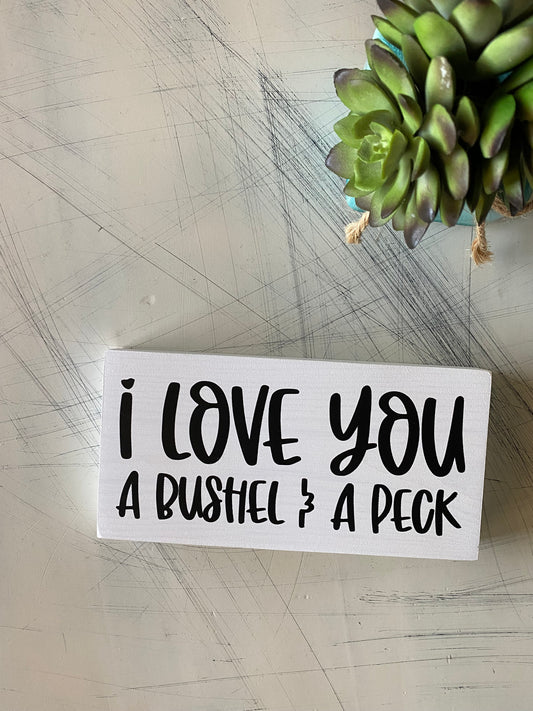 i LOVE YOU
A BUSHEL & A PECK